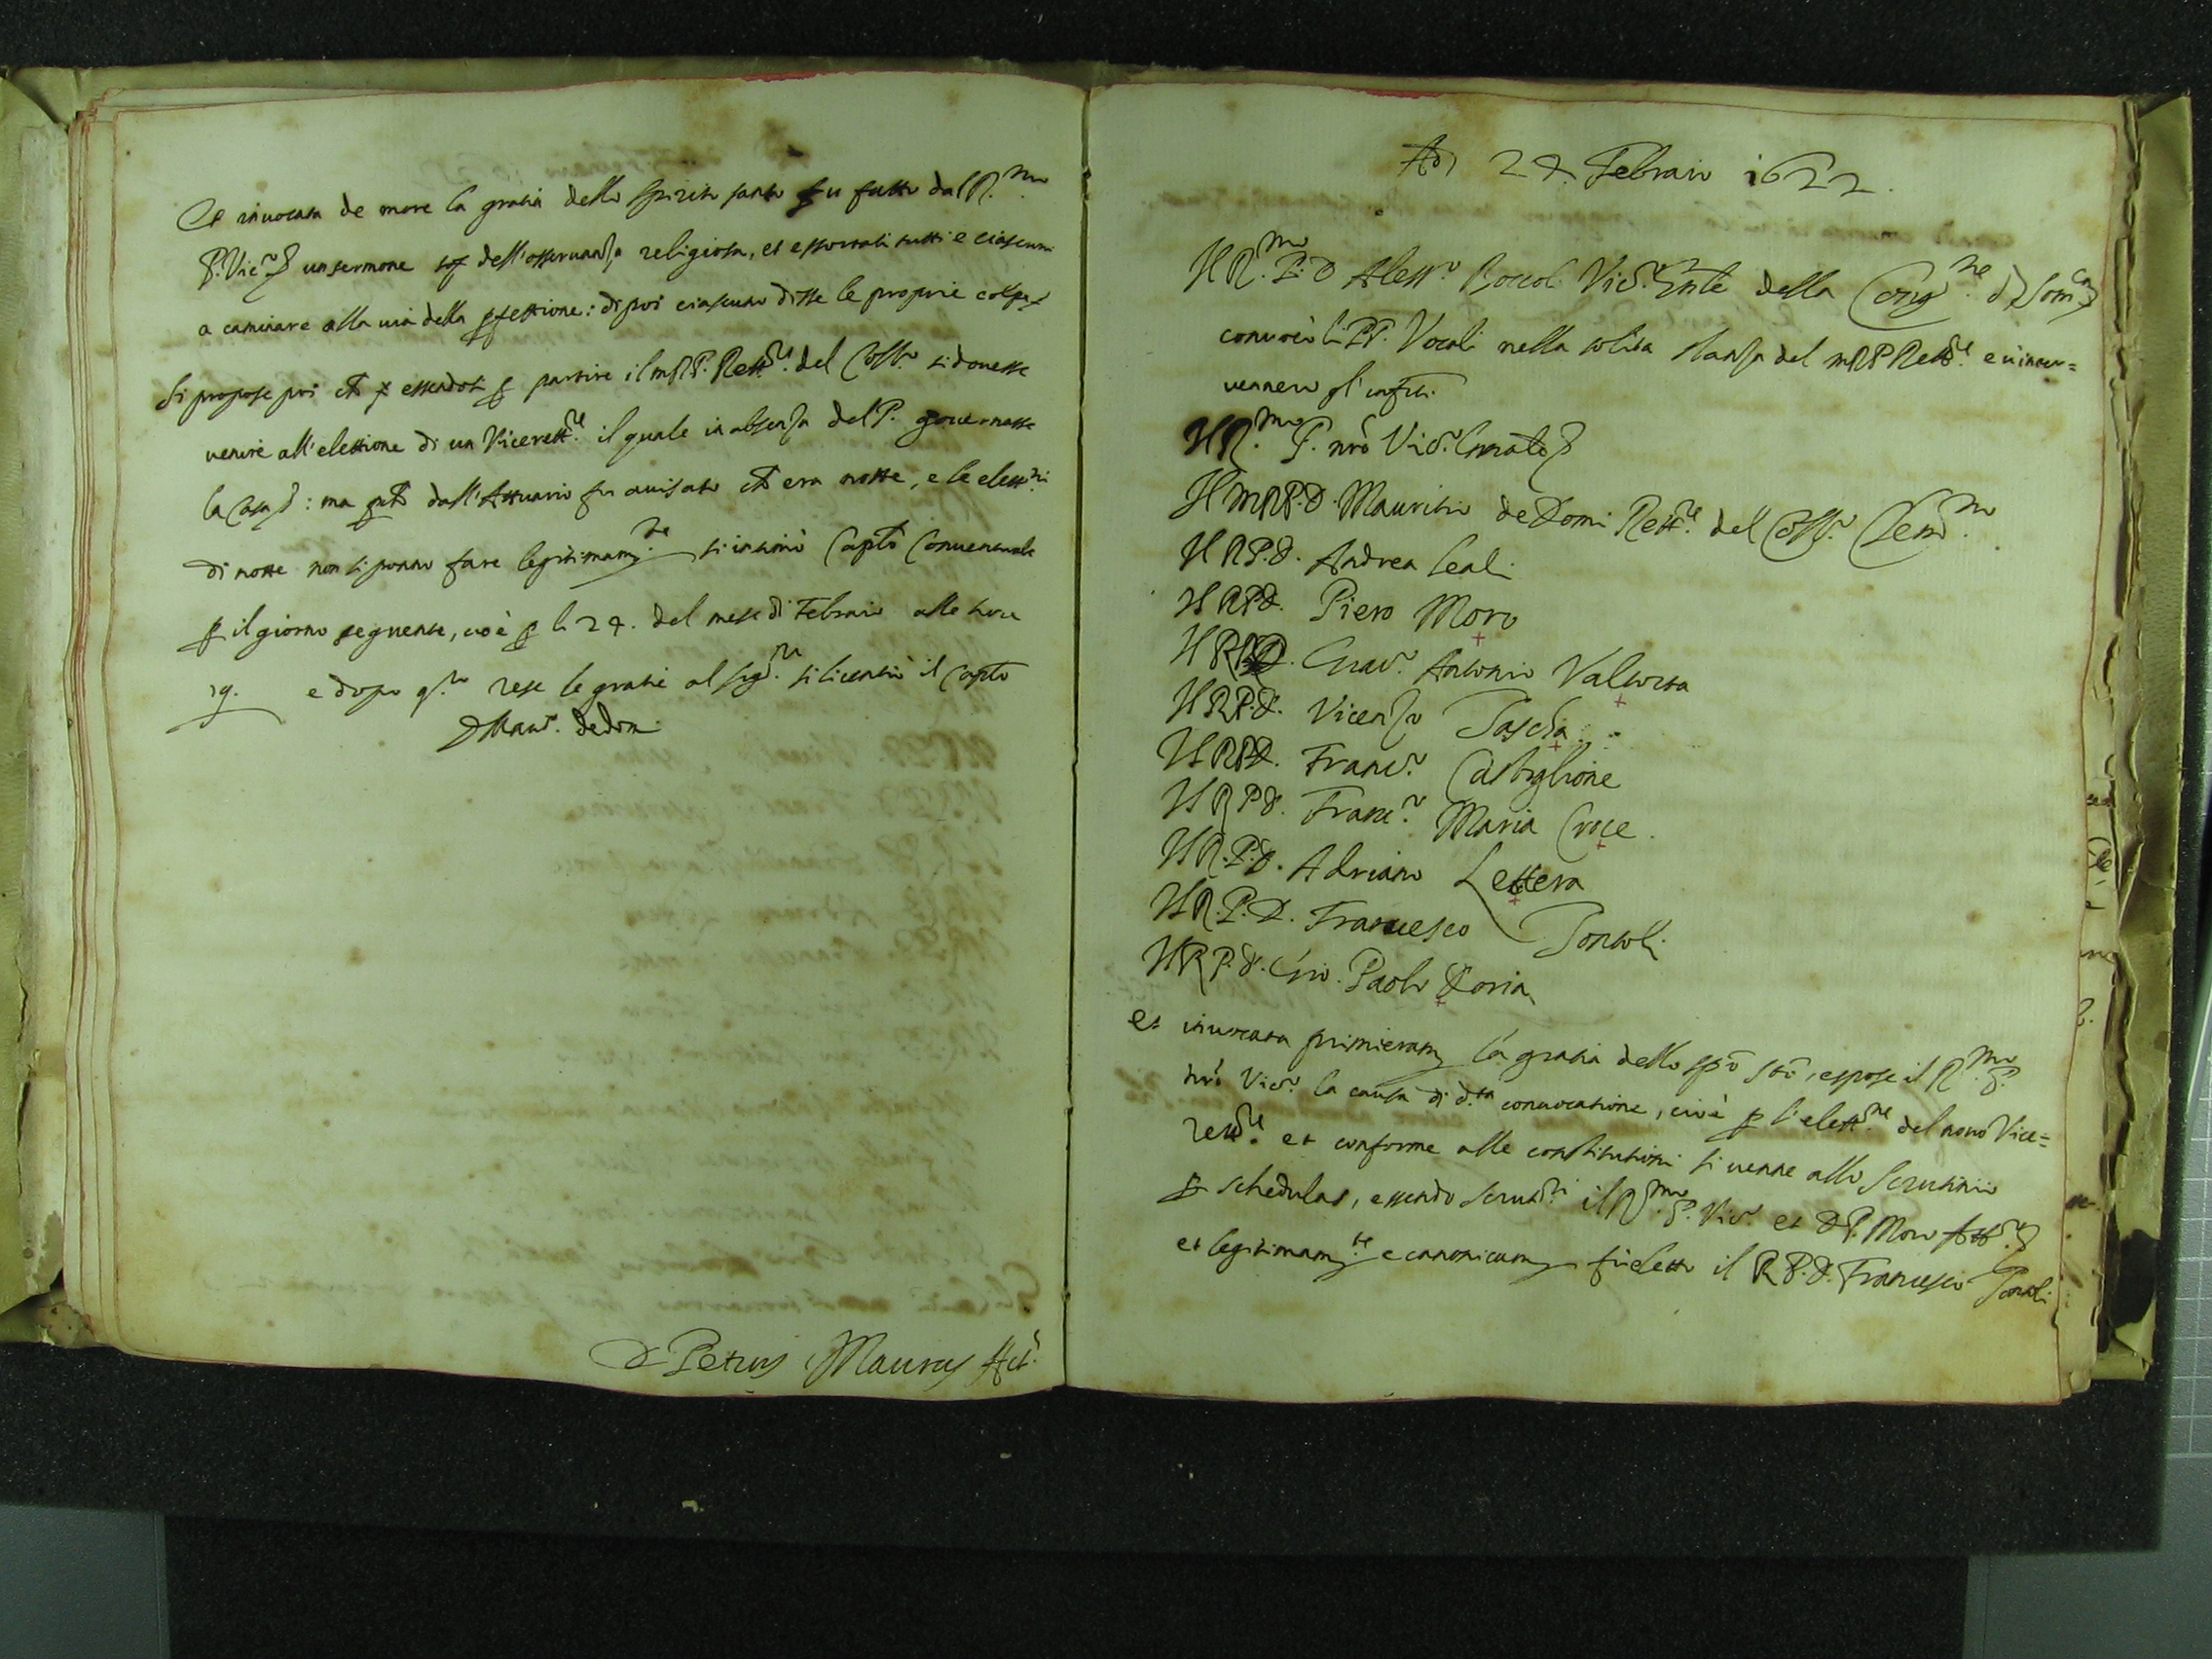 Et invocata de more la gratia dello spirito santo fu fatto dal R.mo
P. Vic.o un sermone dell'osservanza religiosa, et essortati tutti e ciascuni
a caminare alla via della pfettione: dipoi ciascuno disse le proprie colpe
Si propose poi essendo p partire il m R P. Rett.re del Coll.o si dovesse
venire all'elettione di un Vicerett.re il quale in absenza del P. governasse
la Casa: ma dall'Attuario fu avisato era notte, e le elett.ni
di notte non si ponno fare legitimam.te si intimò Capto Conventuale
p il giorno seguente, cioè p li 24. del mese di Febraio alle hore
19. e dopo q.to rese le gratie al sig.re si licentiò il Capto
D Maur. de Domi
D Petrus Maurus Act.
Adi 24 Febraio 1622.
Il R.mo P. D Aless.o Boccoli Vic.o Gnle della Cong.ne di Som.ca
convocò li PP. Vocali nella solita stanza del m R P Rett.re e v'inter=
vennero gl'infri.
Il R.mo P. nro Vic.o Gnrale
Il M R P. D. Mauritio de Domi Rett.re del Coll.o Clem.no
Il R P. D. Andrea Leali
Il R P D. Piero Moro
Il R P D. Antonio Valtorta
Il R P. D. Vicenzo Pascha
Il R P D. Franc.o Castiglione
Il R P D. Franc.o Maria Croce.
Il R. P. D. Adriano Lettera
Il R. P. D. Francesco Tontoli
Il R P. D. Gio. Paolo Doria
et invocata primieram la gratia dello spo sto, espose il R.mo P.
nro Vic.o la causa di d.ta convocatione, cioè p l'elett.ne del novo Vice=
rett.re et conforme alle constitutioni si venne allo scrutinio
p schedulas, essendo scrut.ri il R.mo P. Vic.o et D P. Moro Att.o
et legitimam.te e canonicam fù eletto il R P. D. Francesco Tontoli